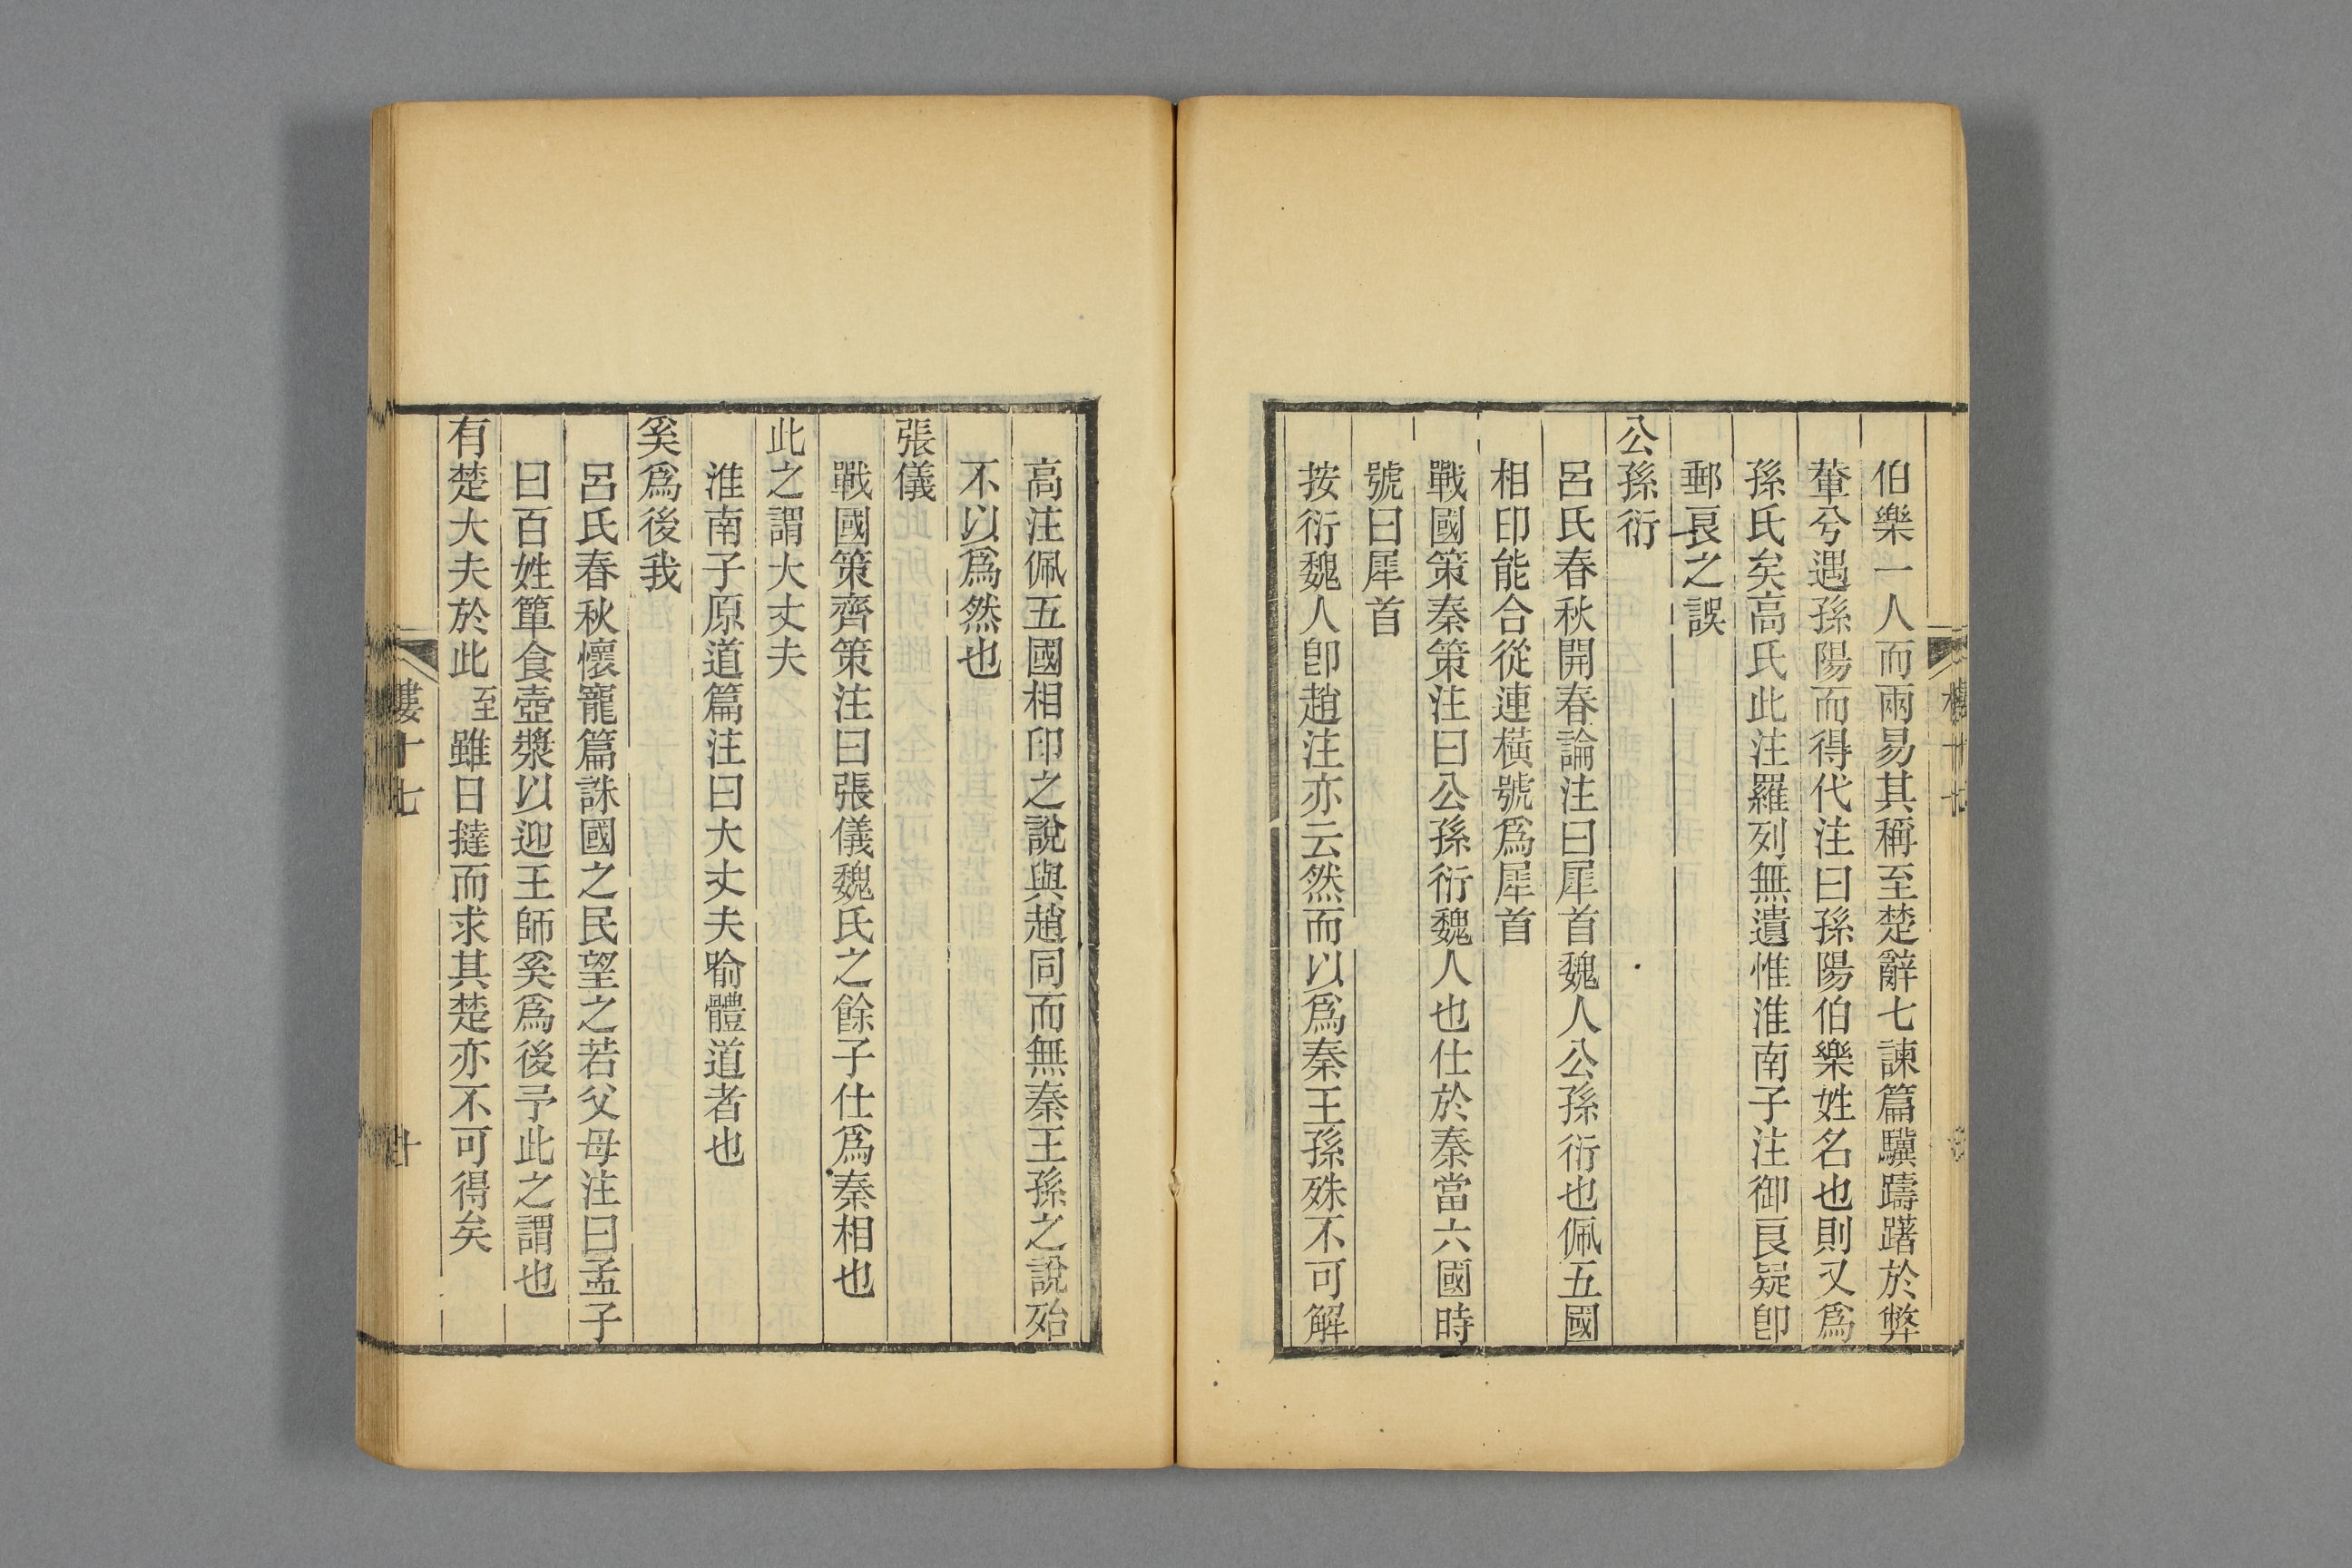 伯樂一人而兩易其稱至楚辭七諫篇驥躊躇於弊
輂兮遇孫陽而得代注曰孫陽伯樂姓名也則又爲
孫氏矣高氏此注羅列無遺惟淮南子注御良疑卽
郵良之誤
公孫衍
呂氏春秋開春論注曰犀首魏人公孫衍也佩五國
相印能合從連橫號爲犀首
戰國策秦策注曰公孫衍魏人也仕於秦當六國時
號曰犀首
按衍魏人卽趙注亦云然而以爲秦王孫殊不可解
高注佩五國相印之說與趙同而無秦王孫之說殆
不以爲然也
張儀
戰國策齊策注曰張儀魏氏之餘子仕爲秦相也
此之謂大丈夫
淮南子原道篇注曰大丈夫喻體道者也
奚爲後我
呂氏春秋懷寵篇誅國之民望之若父母注曰孟子
曰百姓簞食壺漿以迎王師奚爲後予此之謂也
有楚大夫於此至雖日撻而求其楚亦不可得矣
十七